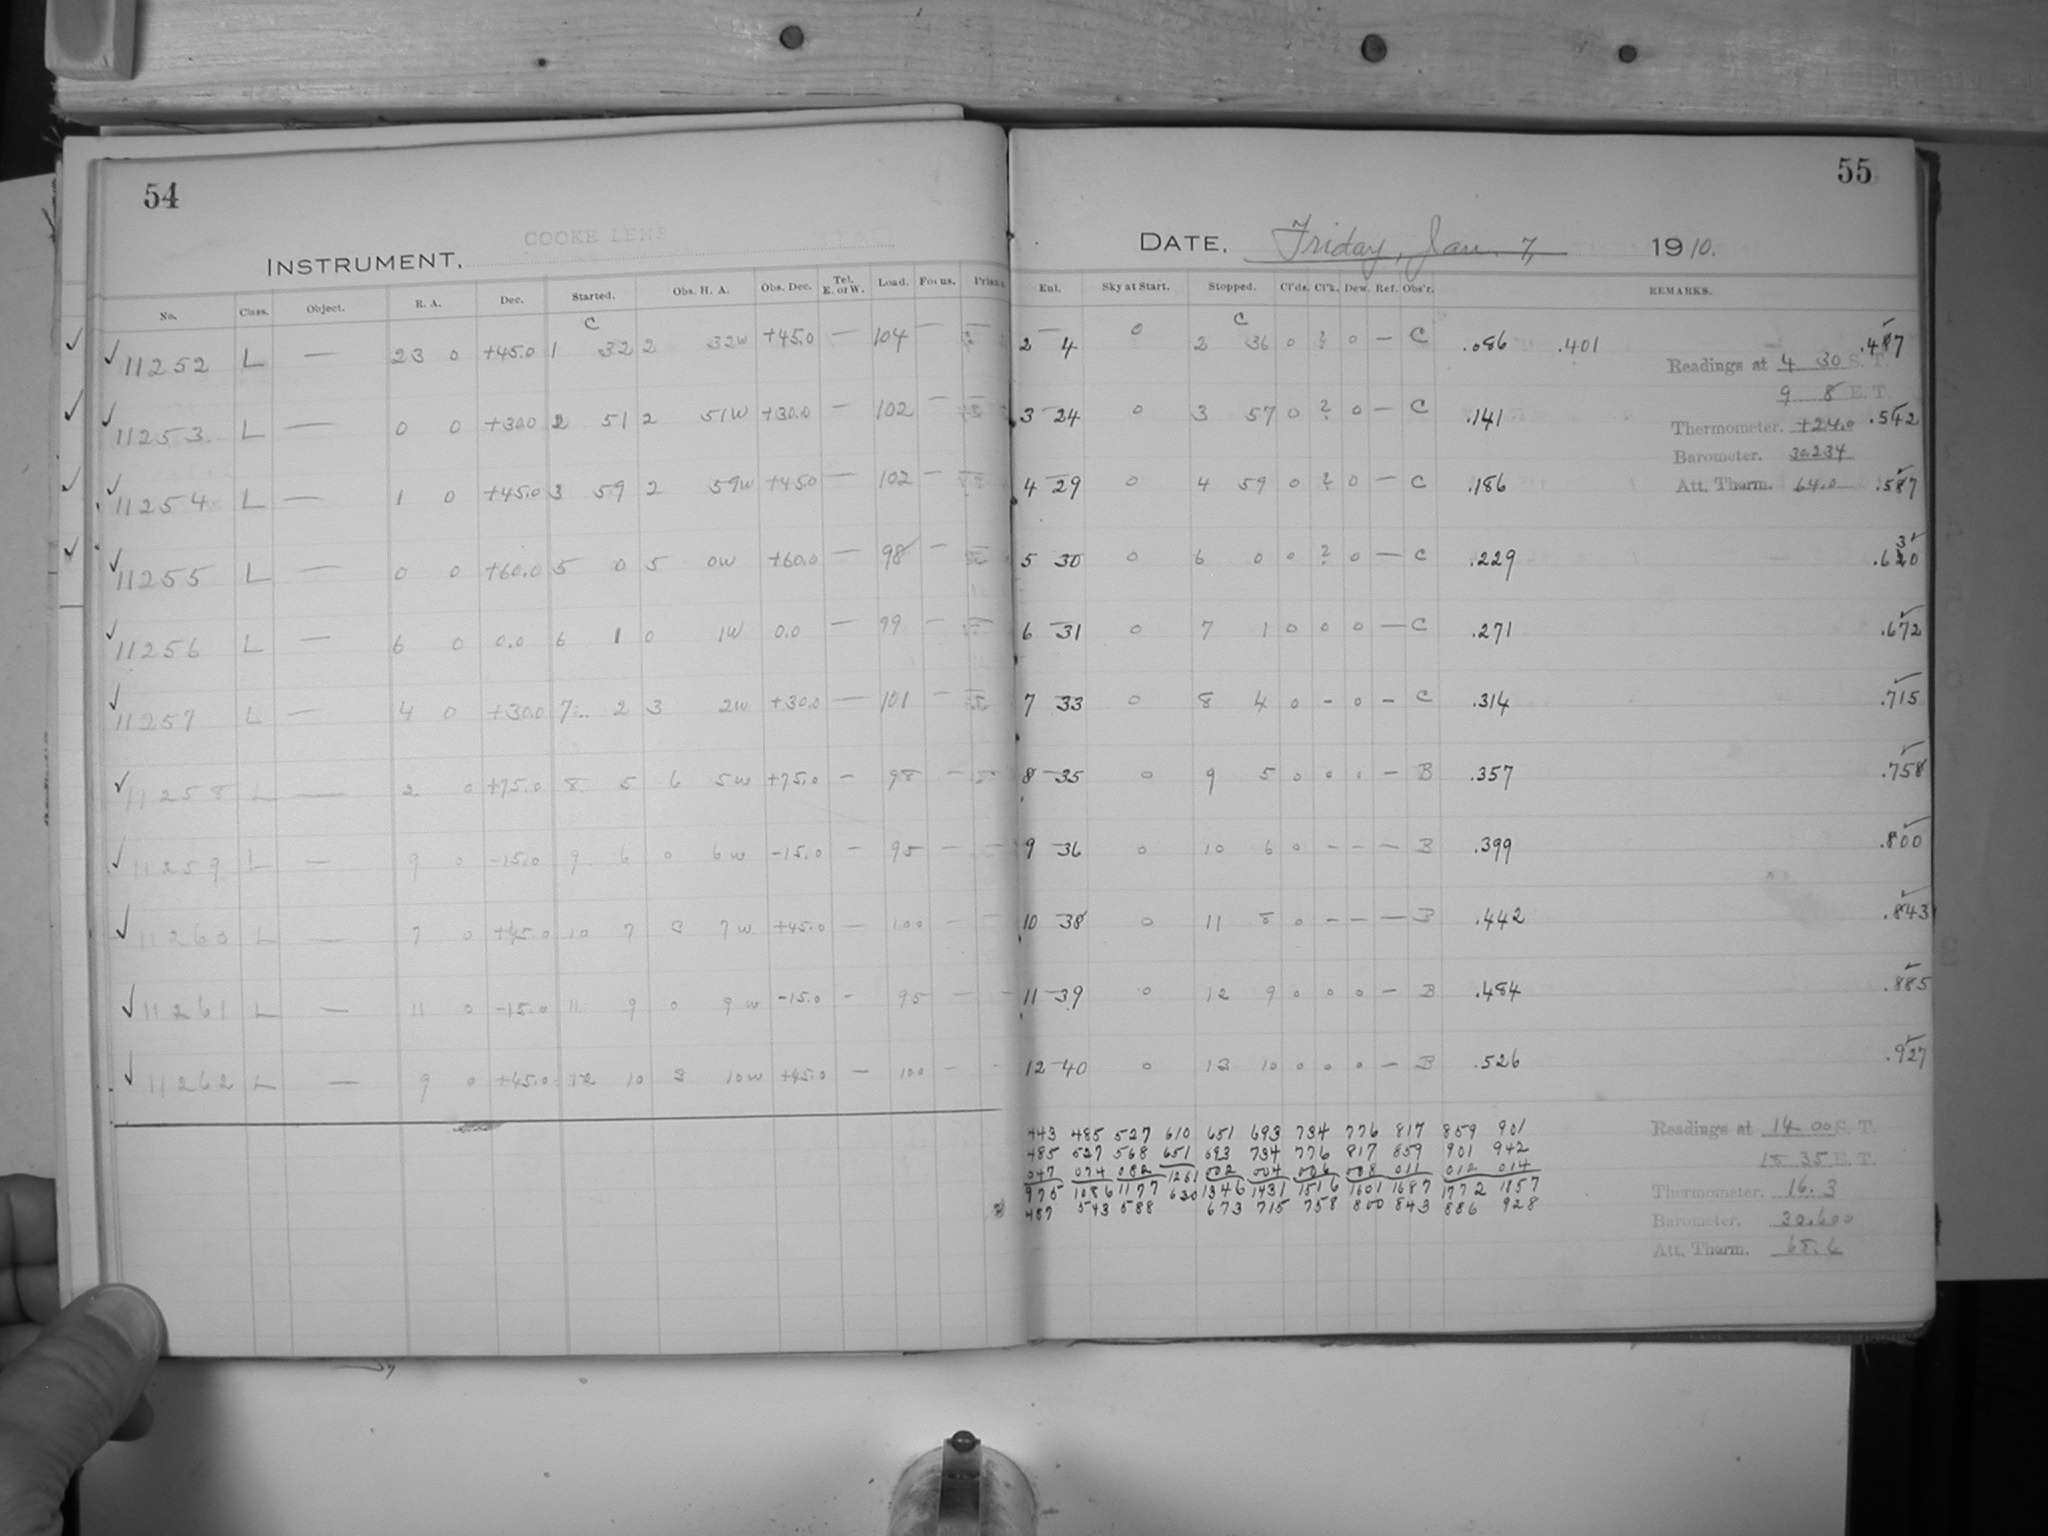 54
COOKE LENS
INSTRUMENT.
No. Class. Object. R. A. Dec. Started. Obs. H. A. Obs. Dec. Tel. E. or W. Load. Focus. Prism
✓ 11252 L — 23 0 +45.0 1 C 32 2 32w +45.0 — 104 —
✓ 11253 L — 0 0 +30.0 2 51 2 51w +30.0 — 102 —
✓ 11254 L — 1 0 +45.0 3 59 2 59w +45.0 — 102 —
✓ 11255 L — 0 0 +60.0 5 0 5 0w +60.0 — 98 —
✓ 11256 L — 6 0 0.0 6 1 0 1w 0.0 — 99 —
✓ 11257 L — 4 0 +30.0 7 2 3 2w +30.0 — 101 —
✓ 11258 L — 2 0 +75.0 8 5 6 5w +75.0 — 98 —
✓ 11259 L — 9 0 -15.0 9 6 0 6w -15.0 — 95 —
✓ 11260 L — 7 0 +45.0 10 7 3 7w +45.0 — 100 —
✓ 11261 L — 11 0 -15.0 11 9 0 9w -15.0 - 95 —
✓ 11262 L — 9 0 +45.0 12 10 3 10w +45.0 — 100 —
55
DATE. Friday, Jan. 7, 1910.
Enl. Sky at Start. Stopped. Cl'ds. Cl'k. Dew. Ref. Obs'r. REMARKS.
2 — 4 0 2 C 36 0 ? 0 — C .086 .401 .487
Readings at 4 30 S. T.
9 8 E. T.
3 — 24 0 3 57 0 ? 0 — C .141 Thermometer. +24.0 .542
Barometer. 30.234
4 — 29 0 4 59 0 ? 0 — C .186 Att. Therm. 64.0 .587
5 30 0 6 0 0 ? 0 — C .229 .620 3
6 — 31 0 7 1 0 0 0 — C .271 .672
7 33 0 8 4 0 - 0 - C .314 .715
8 — 35 0 9 5 0 0 — B .357 .758
9 — 36 0 10 6 0 - - — B .399 .800
10 — 38 0 11 8 0 - — — B .442 .843
11 — 39 0 12 9 0 0 0 — B .484 .885
12 — 40 0 13 10 0 0 0 — B .526 .927
443 485 527 610 651 693 734 776 817 859 901
485 527 568 651 693 734 776 817 859 901 942
047 074 082 1261 002 004 006 008 011 012 014
975 1086 1177 630 1346 1431 1516 1601 1687 1772 1857
487 543 588 673 715 758 800 843 886 928
Readings at 14 00 S. T.
15 35 E. T.
Thermometer. 16.3
Barometer. 30.600
Att. Therm. 65.6